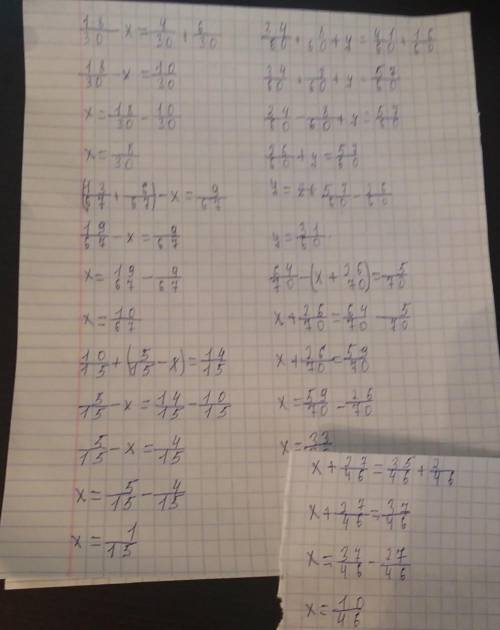 18/30 - x = 4/30 + 6/30
18/30 - x = 10/30
x = 18/30 - 10/30
x = 8/30
(13/67 + 6/67) - x = 9/67
19/67 - x = 9/67
x = 19/67 - 9/67
x = 10/67
10/15 + (5/15 - x) = 14/15
5/15 - x = 14/15 - 10/15
5/15 - x = 4/15
x = 5/15 - 4/15
x = 1/15
+ y = 41/60 + 16/60
+ y = 57/60
+ y = 57/60
26/60 + y = 57/60
y = 57/60 - 26/60
y = 31/60
64/70 - (x + 26/70) = 5/70
x + 26/70 = 64/70 - 5/70
x + 26/70 = 59/70
x = 59/70 - 26/70
x = 33/
x + 27/46 = 35/46 + 2/46
x + 27/46 = 37/46
x = 37/46 - 27/46
x = 10/46